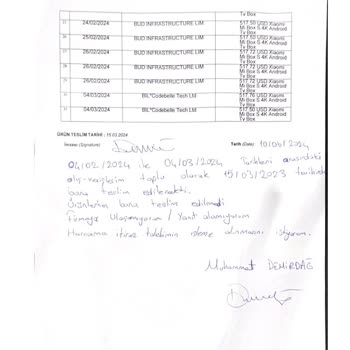 Tv Box
24/02/2024 BUD INFRASTRUCTURE LIM 517.50 USD Xiaomi Mi Box S 4K Android Tv Box
25/02/2024 BUD INFRASTRUCTURE LIM 517.50 USD Xiaomi Mi Box S 4K Android Tv Box
26/02/2024 BUD INFRASTRUCTURE LIM 517.72 USD Xiaomi Mi Box S 4K Android Tv Box
26/02/2024 BUD INFRASTRUCTURE LIM 517.72 USD Xiaomi Mi Box S 4K Android Tv Box
26/02/2024 BUD INFRASTRUCTURE LIM 517.72 USD Xiaomi Mi Box S 4K Android Tv Box
04/03/2024 BIL*Codebelle Tech Ltd USD Xiaomi Mi Box S 4K Android Tv Box
04/03/2024 BIL*Codebelle Tech Ltd USD Xiaomi Mi Box S 4K Android Tv Box
ÜRÜN TESLİM TARİHİ : 15.03.2024
İmzası (Signature) Tarih (Date)
04/02/2024 ile 04/03/2024 Tarihleri arasındaki
alış-verişlerim toplu olarak 15/03/2023 tarihinde
bana teslim edilecekti.
Ürünlerim bana teslim edilmedi
Firmaya Ulaşamıyorum / Yanıt alamıyorum
Harcama itiraz talebimin işleme alınmasını istiyorum.
Muhammet DEMİRDAĞ